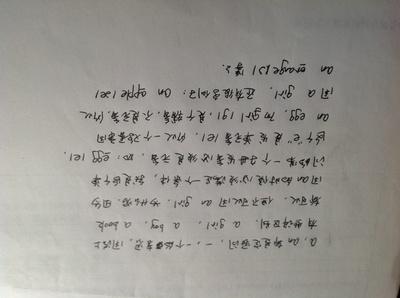 a, an 都是定冠词, 一, 一个的意思, 用法上
有些许区别. a girl, a boy, a book
都可以, 但不可以用 an girl, 为什么呢. 因为
用an的时候必须满足一个条件, 就是这个单
词的第一个字母发音必须是元音. 如: egg |e|,
这个"e"是发单元音|e|, 所以一个鸡蛋要用
an egg, 而 girl |g|, 是个辅音, 不是元音, 所以
用 a girl. 还有很多例子: an apple |æ|
an orange |ɔ| 等.